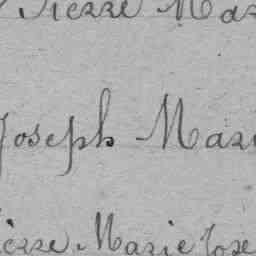 Pierre Mar
Joseph Mari
Pierre Marie Jose